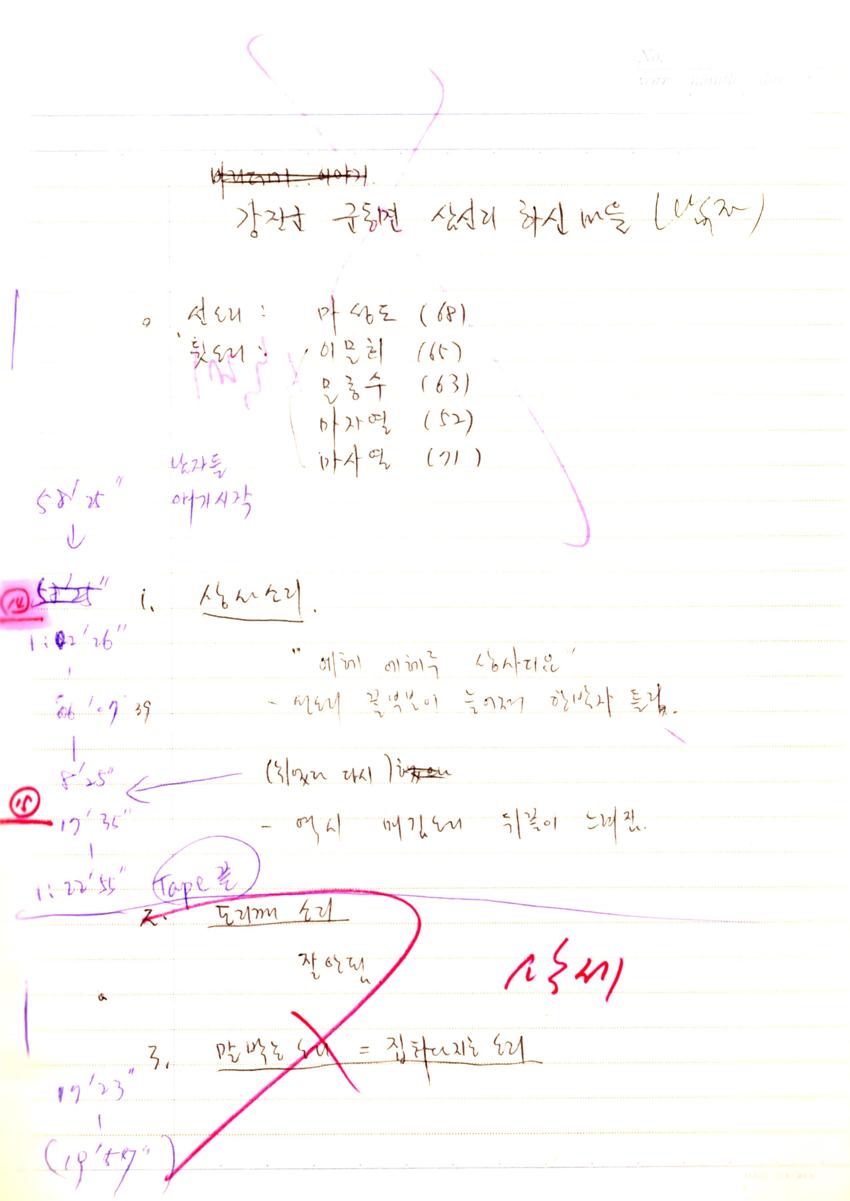 No.
강진군 군동면 삼신리 하신마을 (남자)
선소리 : 마상도 (68)
뒷소리 : 이문희 (65)
문홍수 (63)
마자열 (52)
마사열 (71)
남자들
58' 25" 얘기시작
↓
14 58'25" 1. 상사소리.
1:02'26"
" 에헤 에헤루 상사디요"
07' 39 - 선소리 끝부분이 늘어져 한박자 틀림.
8'25" (쉬었다 다시)
15
17' 35" - 역시 메김소리 뒤끝이 느려짐.
1:22'55" Tape 끝
2. 도리깨 소리
잘 안됨
삭제
3. 말박는 소리 = 집터다지는 소리
17'23"
(19'57")